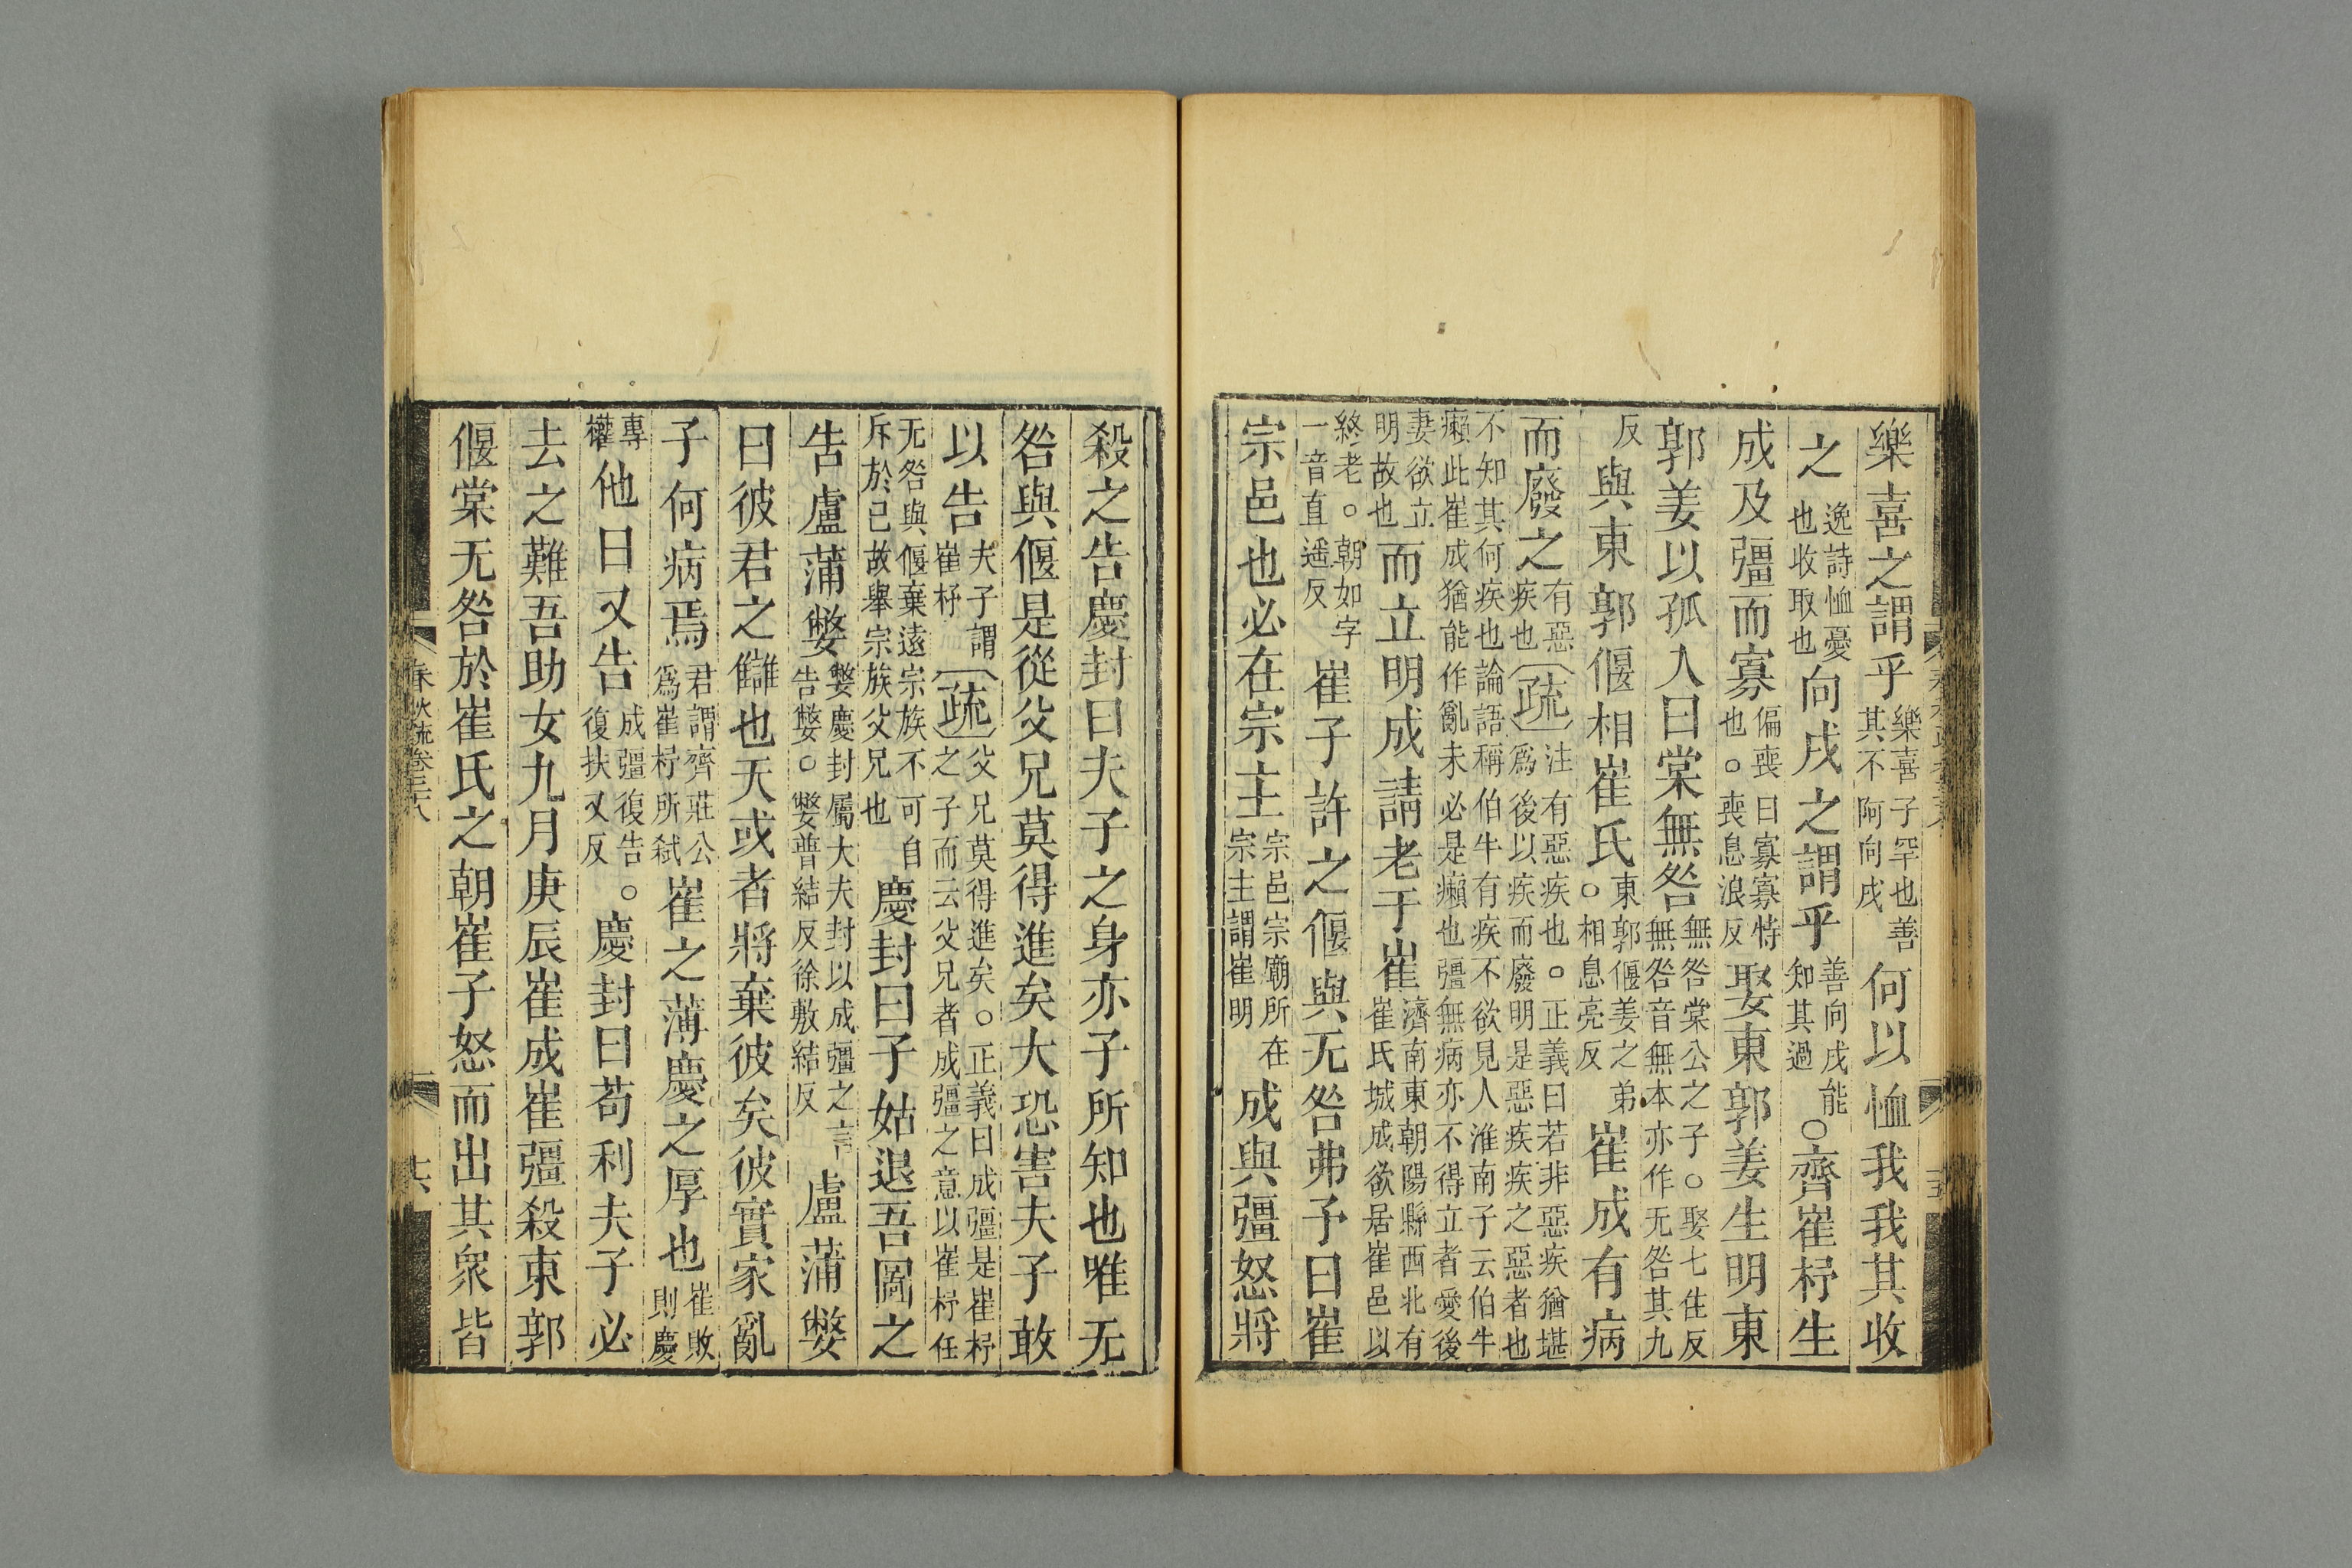 樂喜之謂乎樂喜子罕也善其不阿向戌何以恤我我其收
之逸詩恤憂也收取也向戌之謂乎善向戌能知其過○齊崔杼生
成及彊而寡偏喪曰寡寡特也○喪息浪反娶東郭姜生明東
郭姜以孤入曰棠無咎無咎棠公之子○娶七住反無咎音無本亦作无咎其九
反與東郭偃相崔氏東郭偃姜之弟○相息亮反崔成有病
而廢之有惡疾也疏注有惡疾也○正義曰若非惡疾猶堪爲後以疾而廢明是惡疾疾之惡者也
不知其何疾也論語稱伯牛有疾不欲見人淮南子云伯牛癩此崔成猶能作亂未必是癩也彊無病亦不得立者愛後
妻欲立明故也而立明成請老于崔濟南東朝陽縣西北有崔氏城成欲居崔邑以
終老○朝如字一音直遥反崔子許之偃與无咎弗予曰崔
宗邑也必在宗主宗邑宗廟所在宗主謂崔明成與彊怒將
殺之告慶封曰夫子之身亦子所知也唯无
咎與偃是從父兄莫得進矣大恐害夫子敢
以告夫子謂崔杼疏父兄莫得進矣○正義曰成彊是崔杼之子而云父兄者成彊之意以崔杼任
无咎與偃棄遠宗族不可自斥於己故舉宗族父兄也慶封曰子姑退吾圖之
告盧蒲嫳嫳慶封屬大夫封以成彊之言告嫳○嫳普結反徐敷結反盧蒲嫳
曰彼君之讎也天或者將棄彼矣彼實家亂
子何病焉君謂齊莊公爲崔杼所弒崔之薄慶之厚也崔敗則慶
專權他日又告成彊復告○復扶又反慶封曰苟利夫子必
去之難吾助女九月庚辰崔成崔彊殺東郭
偃棠无咎於崔氏之朝崔子怒而出其眾皆
春秋疏卷三十八
十六